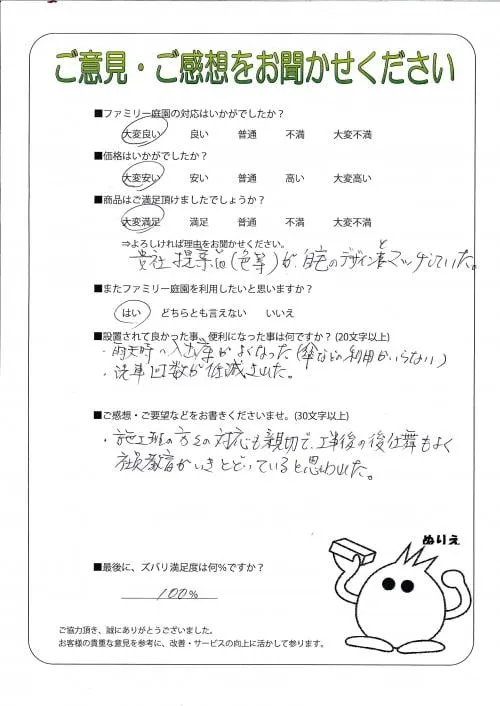 ご意見・ご感想をお聞かせください
■ファミリー庭園の対応はいかがでしたか?
大変良い 良い 普通 不満 大変不満
■価格はいかがでしたか?
大変安い 安い 普通 高い 大変高い
■商品はご満足頂けましたでしょうか?
大変満足 満足 普通 不満 大変不満
⇒よろしければ理由をお聞かせください。
貴社提案品(色等)が、自宅のデザインとマッチしていた。
■またファミリー庭園を利用したいと思いますか?
はい どちらとも言えない いいえ
■設置されて良かった事、便利になった事は何ですか?(20文字以上)
・雨天時の入出庫がよくなった(傘などの利用がいらない)
・洗車回数が低減出来た。
■ご感想・ご要望などをお書きくださいませ。(30文字以上)
・施工班の方々の対応も親切で、工事後の後仕舞もよく
社員教育がいきとどいていると思われた。
ぬりえ
■最後に、ズバリ満足度は何%ですか?
100%
ご協力頂き、誠にありがとうございました。
お客様の貴重な意見を参考に、改善・サービスの向上に活かして参ります。